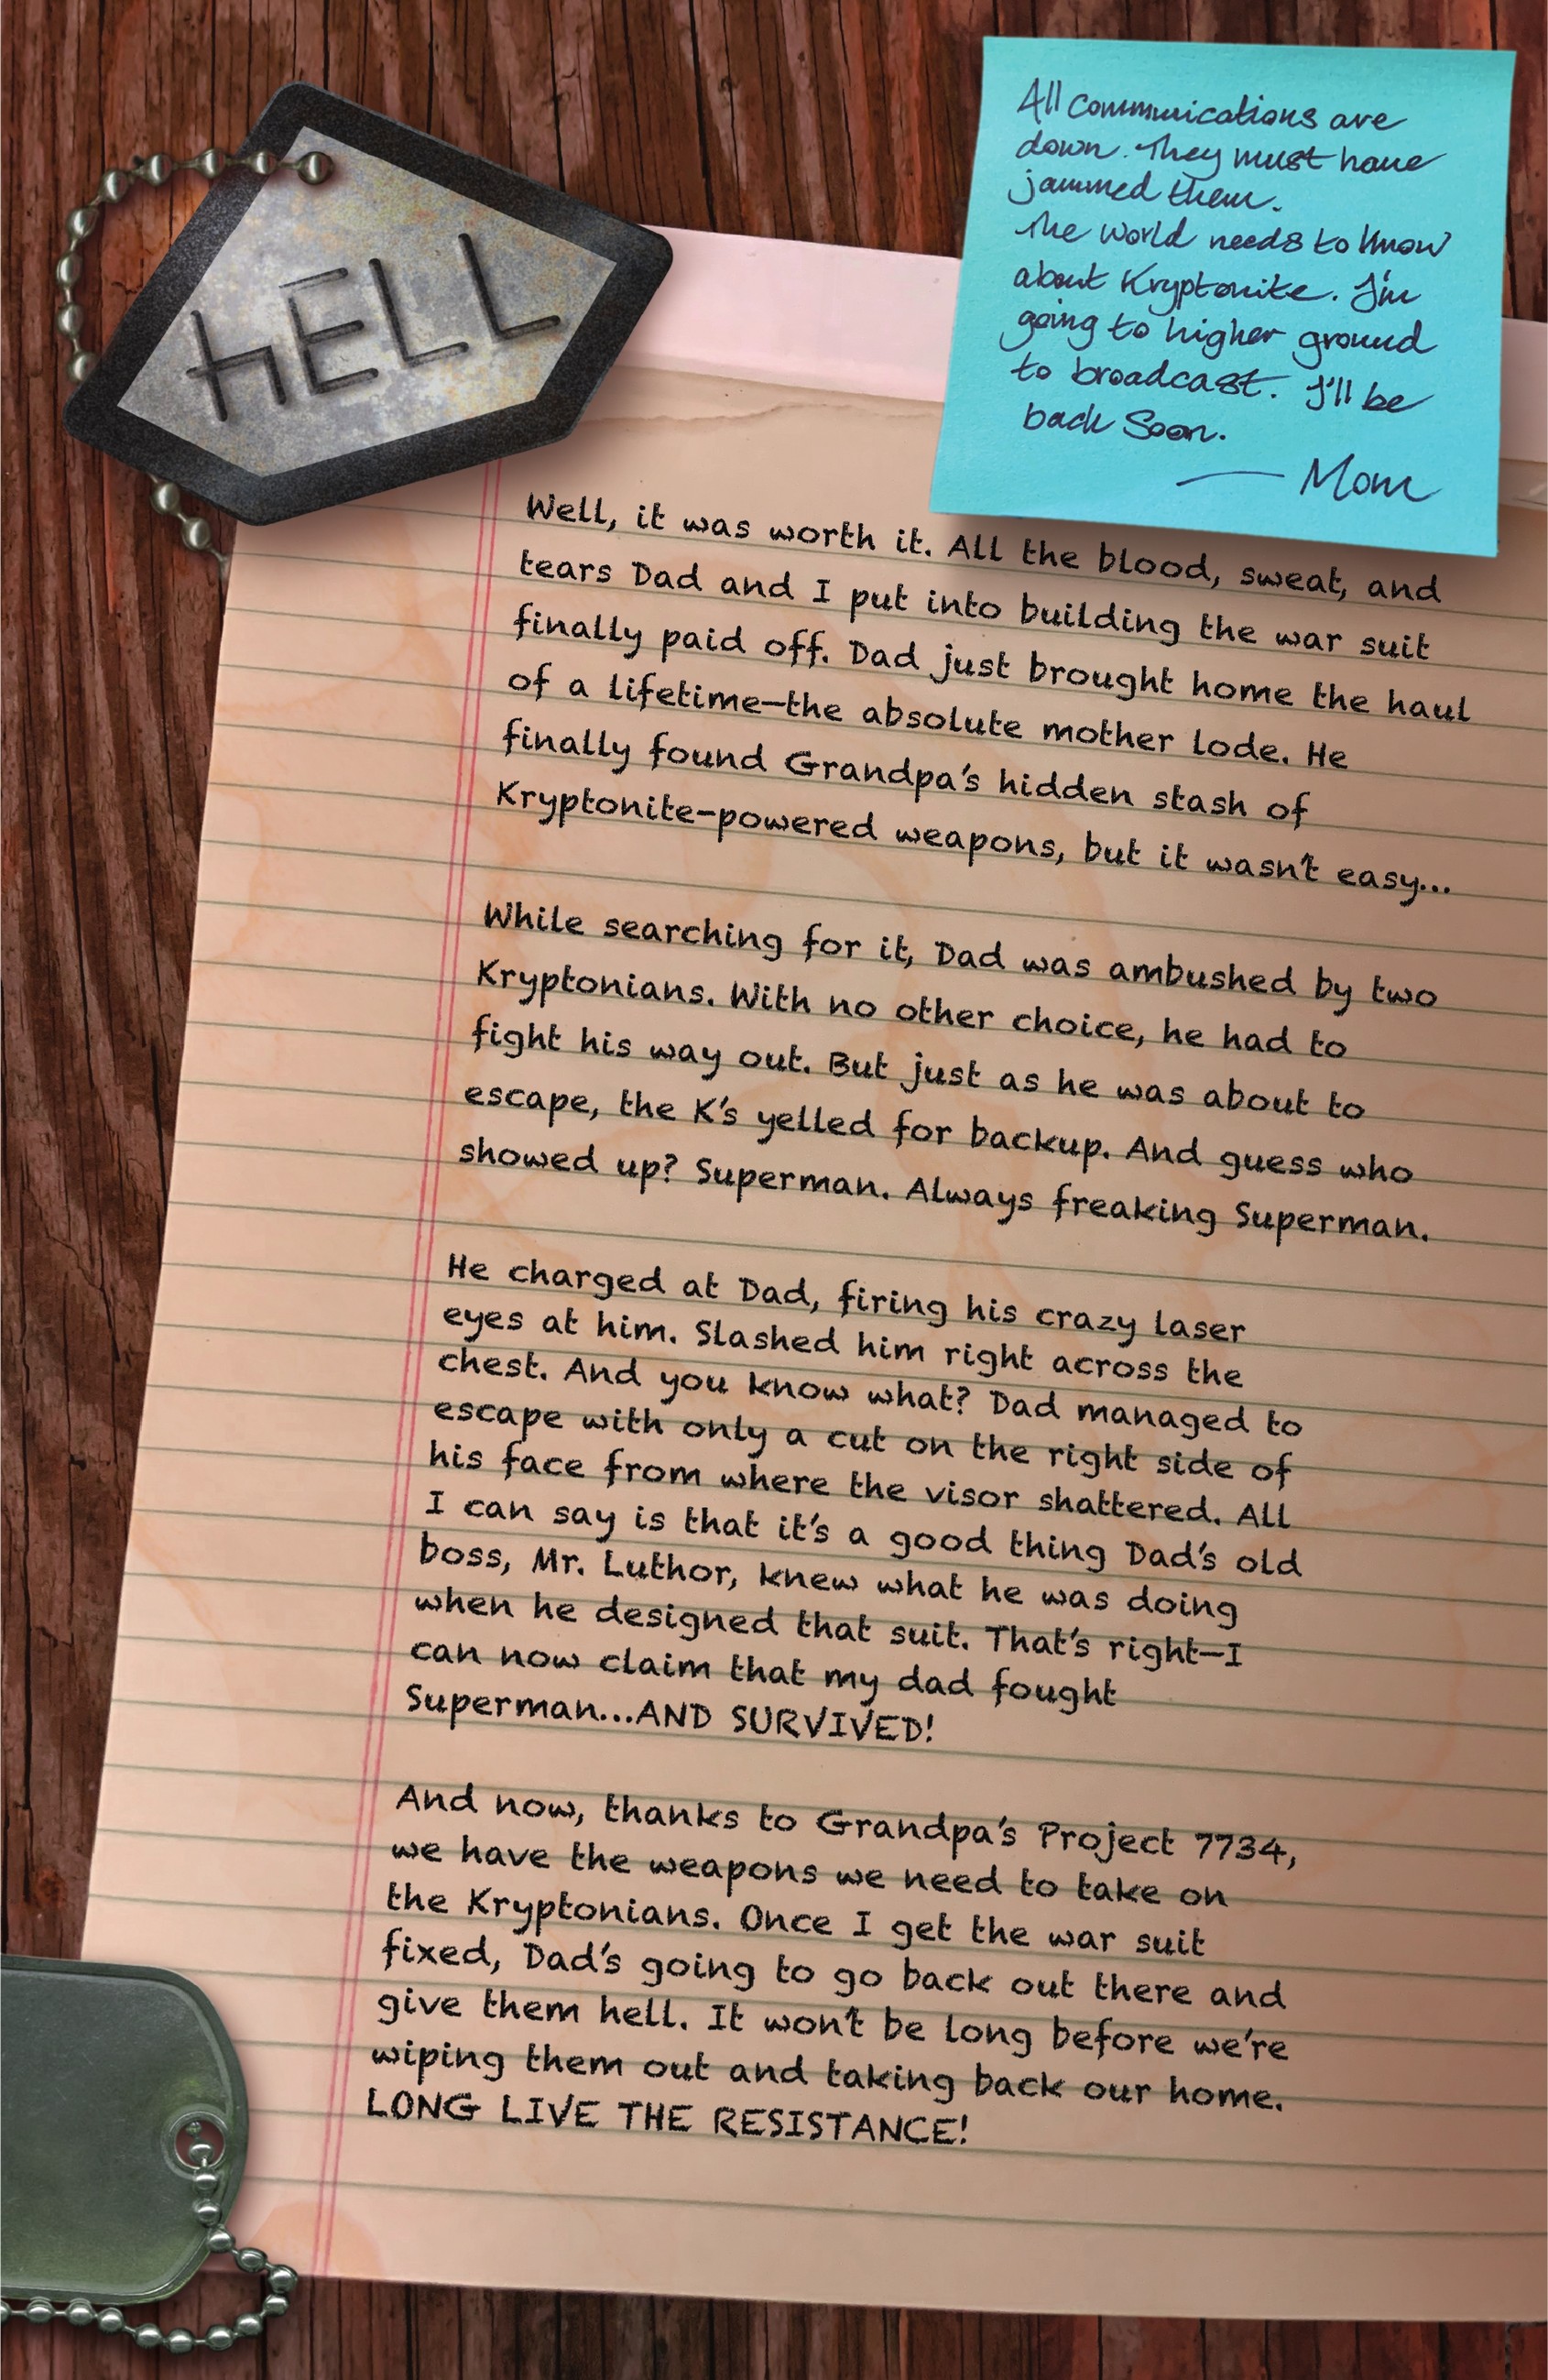 hELL
All communications are
down. They must have
jammed them.
The world needs to know
about Kryptonite. I'm
going to higher ground
to broadcast. I'll be
back soon.
— Mom
Well, it was worth it. All the blood, sweat, and
tears Dad and I put into building the war suit
finally paid off. Dad just brought home the haul
of a lifetime—the absolute mother lode. He
finally found Grandpa's hidden stash of
Kryptonite-powered weapons, but it wasn't easy...
While searching for it, Dad was ambushed by two
Kryptonians. With no other choice, he had to
fight his way out. But just as he was about to
escape, the K's yelled for backup. And guess who
showed up? Superman. Always freaking Superman.
He charged at Dad, firing his crazy laser
eyes at him. Slashed him right across the
chest. And you know what? Dad managed to
escape with only a cut on the right side of
his face from where the visor shattered. All
I can say is that it's a good thing Dad's old
boss, Mr. Luthor, knew what he was doing
when he designed that suit. That's right—I
can now claim that my dad fought
Superman...AND SURVIVED!
And now, thanks to Grandpa's Project 7734,
we have the weapons we need to take on
the Kryptonians. Once I get the war suit
fixed, Dad's going to go back out there and
give them hell. It won't be long before we're
wiping them out and taking back our home.
LONG LIVE THE RESISTANCE!